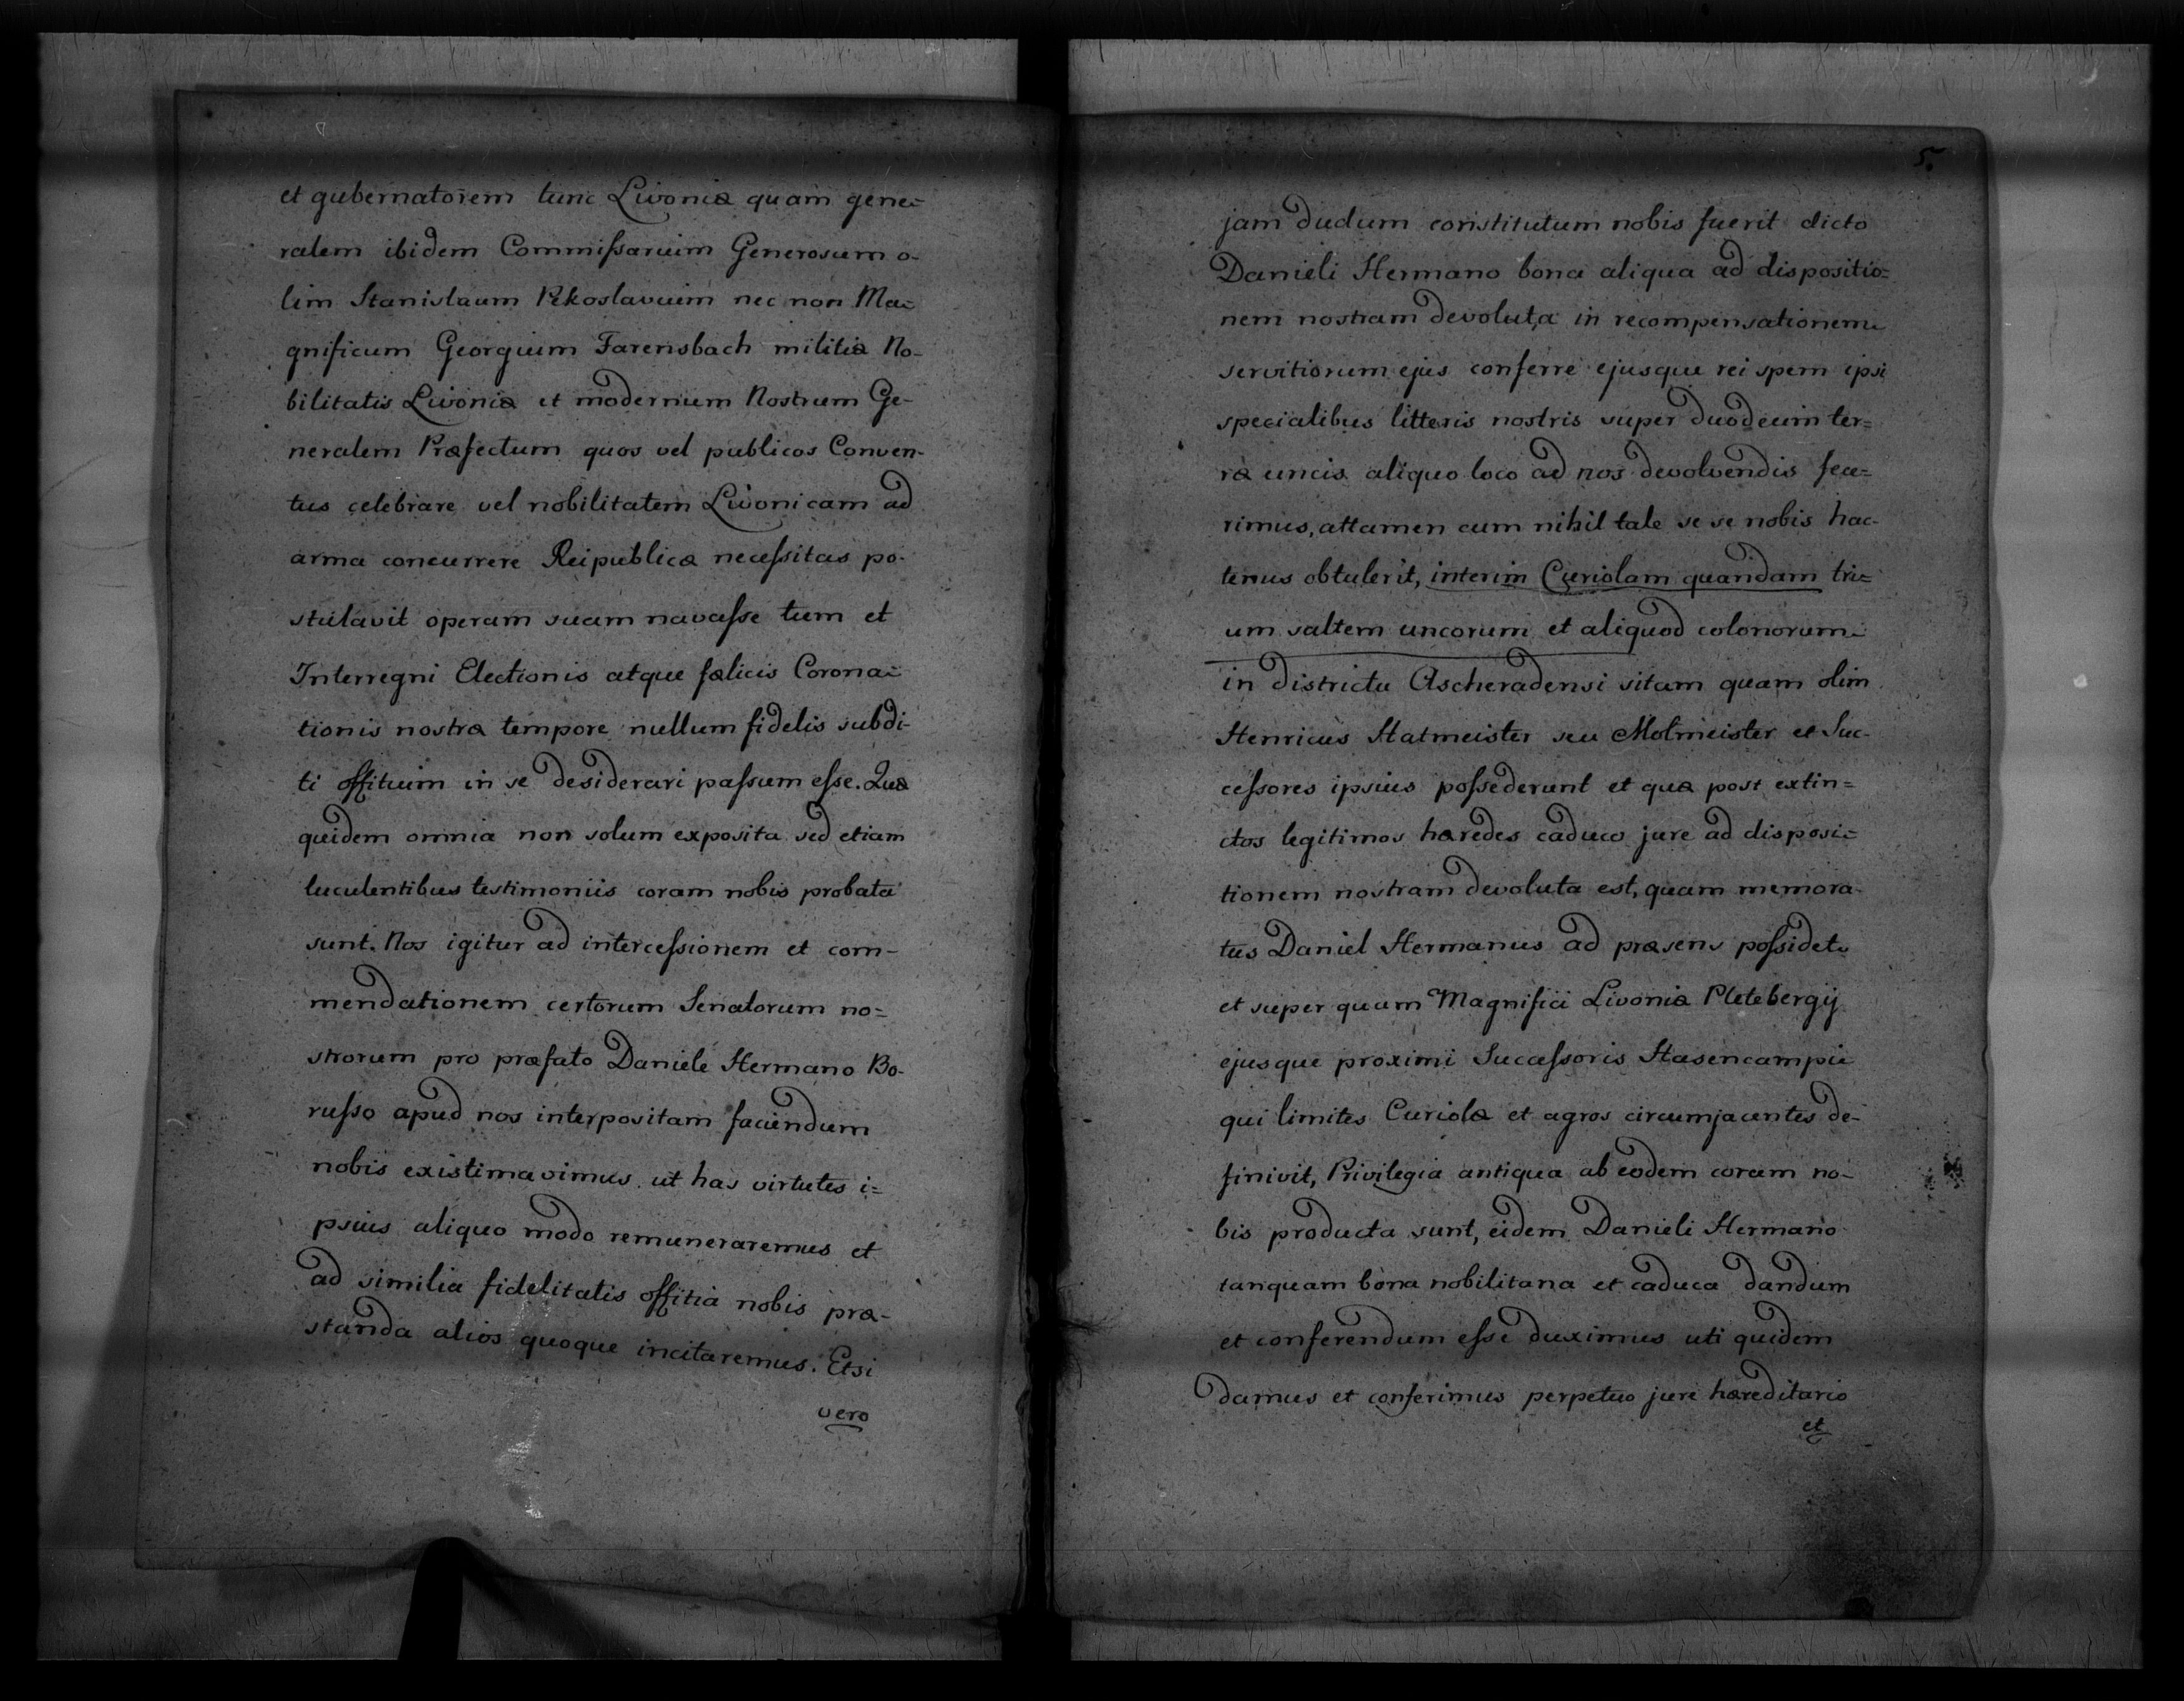 et gubernatorem tunc Livoniæ quam gene=
ralem ibidem Commissarium Generosum o-
lim Stanislaum Pekoslavium nec non Ma=
gnificum Georgium Farensbach militiæ No-
bilitatis Livoniæ et modernum Nostrum Ge-
neralem Præfectum quos vel publicos Conven-
tus celebrare vel nobilitatem Livonicam ad
arma concurrere Reipublicæ necessitas po-
stulavit operam suam navasse tum et
Interregni Electionis atque fælicis Corona=
tionis nostræ tempore nullum fidelis subdi-
ti offitium in se desiderari passum esse. Quæ
quidem omnia non solum exposita sed etiam
luculentibus testimoniis coram nobis probata
sunt. Nos igitur ad intercessionem et com-
mendationem certorum Senatorum no=
strorum pro præfato Daniele Hermano Bo-
russo apud nos interpositam faciendum
nobis existimavimus ut has virtutes i=
psius aliquo modo remuneraremus et
ad similia fidelitatis offitia nobis præ-
standa alios quoque incitaremus. Etsi
vero
5.
jam dudum constitutum nobis fuerit dicto
Danieli Hermano bona aliqua ad dispositio=
nem nostram devoluta in recompensationem
servitiorum ejus conferre ejusque rei spem ipsi
specialibus litteris nostris super duodeum ter=
ræ uncis aliquo loco ad nos devolvendis fece=
rimus, attamen cum nihil tale se se nobis hac-
tenus obtulerit, interim Curiolam quandam tri=
um saltem uncorum et aliquod colonorum
in districtu Ascheradensi sitam quam olim
Henricus Hatmeister seu Molmeister et Suc-
cessores ipsius possederunt et quæ post extin=
ctos legitimos hæredes caduco jure ad disposi=
tionem nostram devoluta est, quam memora-
tus Daniel Hermanus ad præsens possidet
et super quam Magnifici Livoniæ Pletebergij
ejusque proximi Successoris Hasencampii
qui limites Curiolæ et agros circumjacentes de-
finivit, Privilegia antiqua ab eodem coram no-
bis producta sunt, eidem Danieli Hermano
tanquam bona nobilitaria et caduca dandum
et conferendum esse duximus uti quidem
damus et conferimus perpetuo jure hæreditario
et